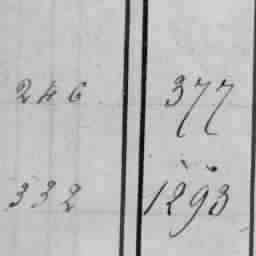 246 377
332 1293